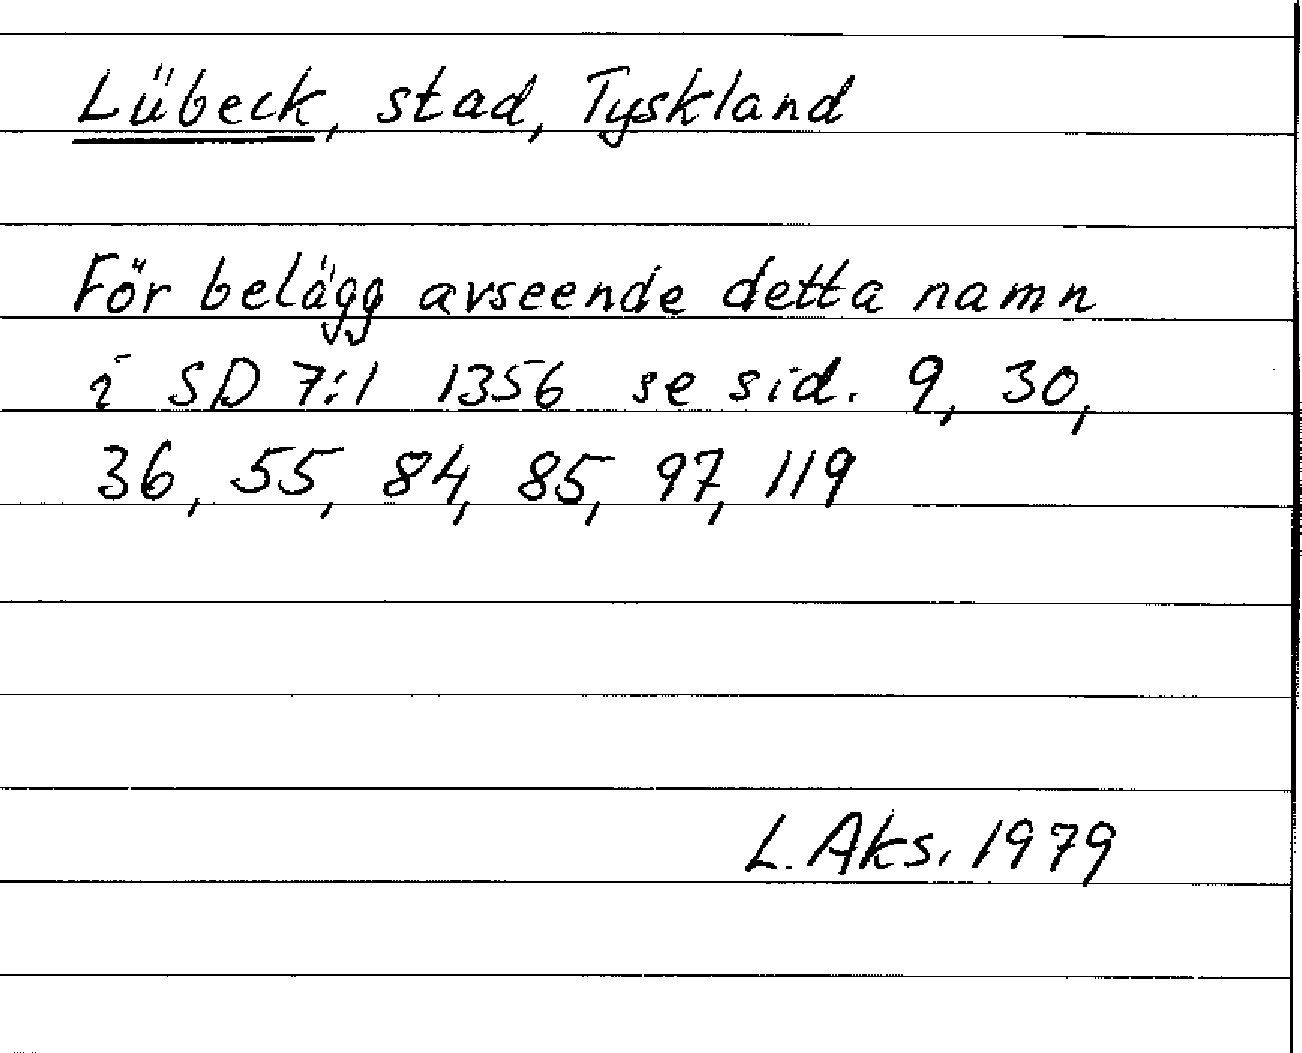 Lübeck, stad, Tyskland
För belägg avseende detta namn
i SD 7:1 1356 se sid. 9, 30,
36, 55, 84, 85, 97, 119
L. Aks. 1979